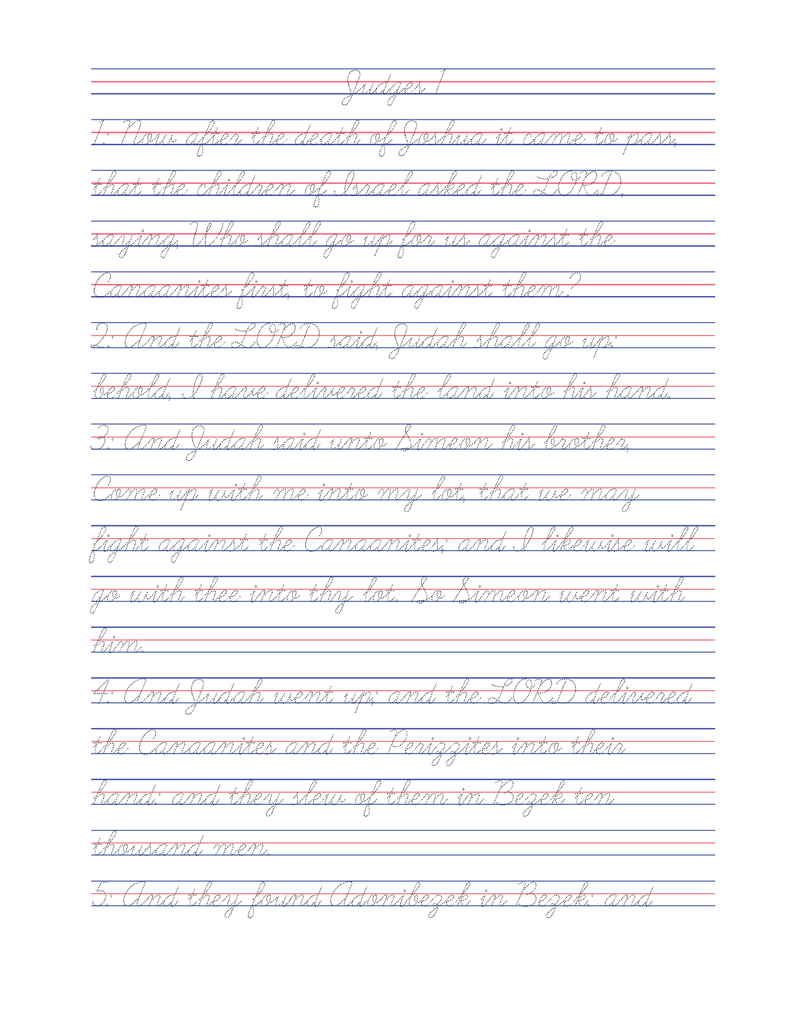 Judges 1
1: Now after the death of Joshua it came to pass,
that the children of Israel asked the LORD,
saying, Who shall go up for us against the
Canaanites first, to fight against them?
2: And the LORD said, Judah shall go up:
behold, I have delivered the land into his hand.
3: And Judah said unto Simeon his brother,
Come up with me into my lot, that we may
fight against the Canaanites; and I likewise will
go with thee into thy lot. So Simeon went with
him.
4: And Judah went up; and the LORD delivered
the Canaanites and the Perizzites into their
hand: and they slew of them in Bezek ten
thousand men.
5: And they found Adonibezek in Bezek: and